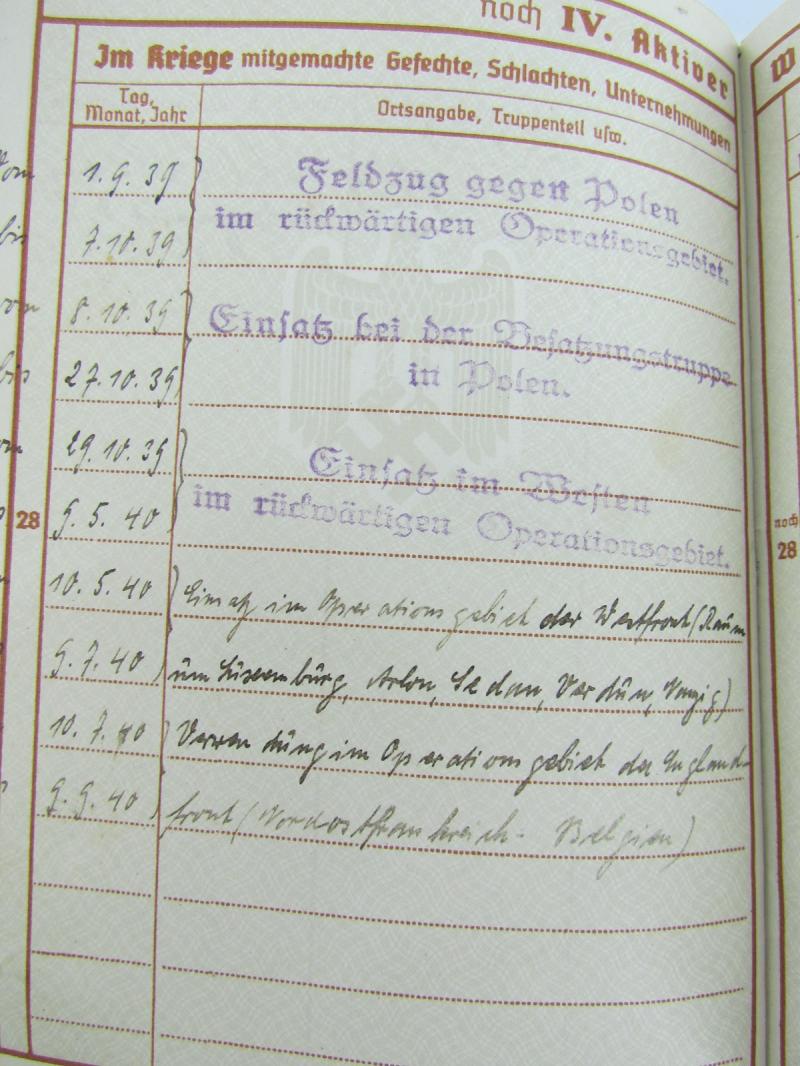 noch IV. Aktiver
Im Kriege mitgemachte Gefechte, Schlachten, Unternehmungen
Tag, Monat, Jahr
Ortsangabe, Truppenteil usw.
1.9.39
Feldzug gegen Polen
7.10.39
im rückwärtigen Operationsgebiet.
8.10.39
Einsatz bei der Besatzungstruppe
27.10.39
in Polen.
29.10.39
Einsatz im Westen
28
9.5.40
im rückwärtigen Operationsgebiet.
10.5.40
Einsatz im Operationsgebiet der Westfront (Raum
9.7.40
um Luxemburg, Arlon, Sedan, Verdun, Nanzig)
10.7.40
Verwendung im Operationsgebiet der England-
9.9.40
front (Nordostfrankreich - Belgien)
noch
28